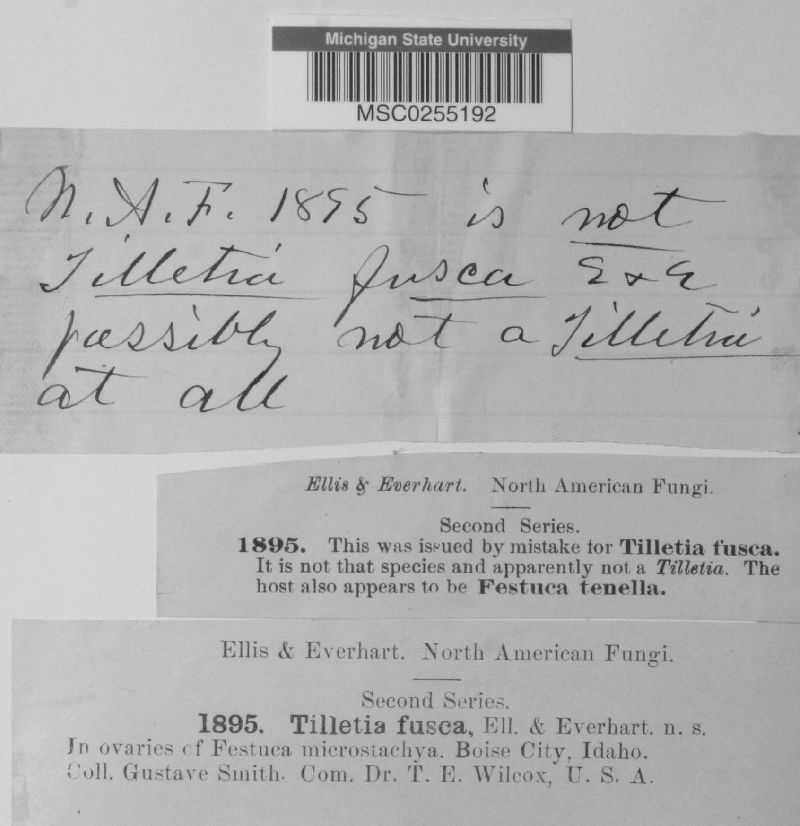 Michigan State University
MSC0255192
N. A. F. 1895 is not
Tilletia fusca E & E
possibly not a Tilletia
at all
Ellis & Everhart. North American Fungi.
Second Series.
1895. This was issued by mistake for Tilletia fusca.
It is not that species and apparently not a Tilletia. The
host also appears to be Festuca tenella.
Ellis & Everhart. North American Fungi.
Second Series.
1895. Tilletia fusca, Ell. & Everhart. n. s.
In ovaries of Festuca microstachya. Boise City, Idaho.
Coll. Gustave Smith. Com. Dr. T. E. Wilcox, U. S. A.